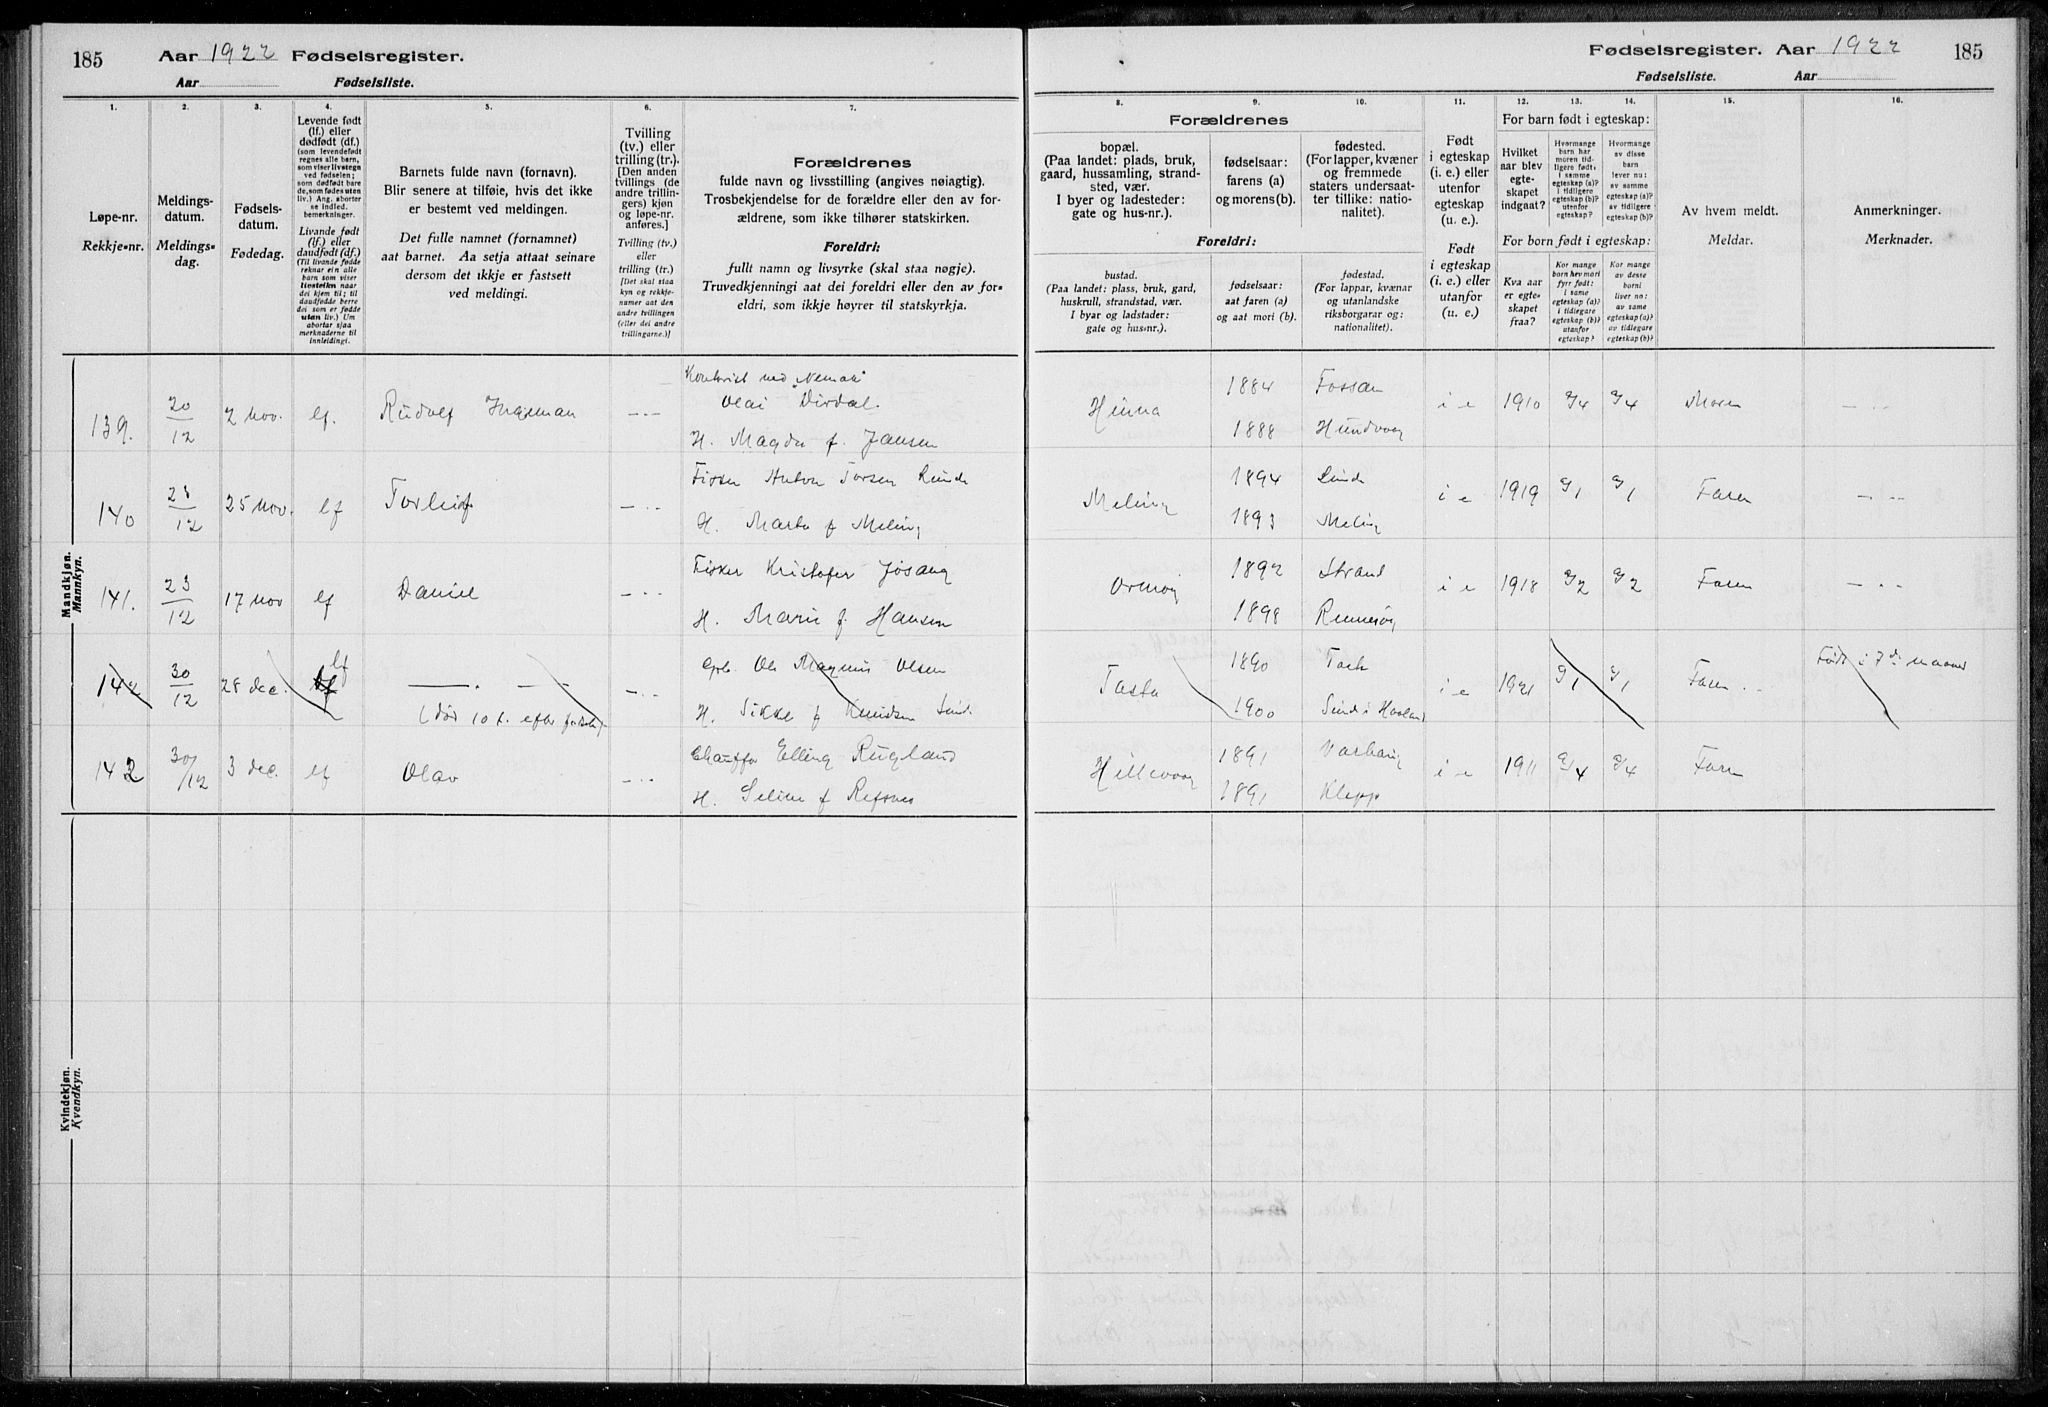 185 Aar 1922 Fødselsregister.
Aar Fødselsliste.
1. 2. 3. 4. 5. 6. 7.
Løpe-nr.
Rekkje-nr.
Meldings-
datum.
Meldings-
dag.
Fødsels-
datum.
Fødedag.
Levende født
(lf.) eller
dødfødt (df.)
(som levendefødt
regnes alle barn,
som viser livstegn
ved fødselen;
som dødfødt bare
de, som fødes uten
liv.) Ang. aborter
se indled.
bemerkninger.
Livande født
(lf.) eller
daudfødt (df.)
(Til livande fødde
reknar ein alle
barn som viser
livsteikn naar
dei kjem til; til
daudfødde berre
dei som er fødde
utan liv.) Um
abortar sjaa
merknaderne til
innleidingi.
Barnets fulde navn (fornavn).
Blir senere at tilføie, hvis det ikke
er bestemt ved meldingen.
Det fulle namnet (fornamnet)
aat barnet. Aa setja attaat seinare
dersom det ikkje er fastsett
ved meldingi.
Tvilling
(tv.) eller
trilling (tr.).
[Den anden
tvillings (de
andre trillin-
gers) kjøn
og løpe-nr.
anføres.]
Tvilling (tv.)
eller
trilling (tr.)
[Det skal staa
kyn og rekkje-
numer aat den
andre tvillingen
(eller dei andre
trillingarne.)]
Forældrenes
fulde navn og livsstilling (angives nøiagtig).
Trosbekjendelse for de forældre eller den av for-
ældrene, som ikke tilhører statskirken.
Foreldri:
fullt namn og livsyrke (skal staa nøgje).
Truvedkjenningi aat dei foreldri eller den av for-
eldri, som ikkje høyrer til statskyrkja.
Mandkjøn.
Mannkyn.
139. 20/12 2 nov. lf. Rudolf Ingeman — . —
Kontorist ved "Nemak"
Olai Dirdal.
H. Magda f. Jansen
140 28/12 25 nov. lf Torleif — . .
Fisker Anton Torsen Rinde
H. Marta f Meling
141. 23/12 17 nov lf Daniel — . .
Fisker Kristofer Jøsang
H. Marie f. Hansen
142 30/12 28 dec. lf — . — —
(død 10 t. efter fødsel).
Ole Magnus Olsen
H. Sikke f Knudsen
142 30/12 3 dec. lf Olav — . .
Chauffør Elling Rugland
H. Seline f Refsnes
Kvindekjøn.
Kvendkyn.
Fødselsregister. Aar 1922 185
Fødselsliste. Aar
8. 9. 10. 11. 12. 13. 14. 15. 16.
Forældrenes
bopæl.
(Paa landet: plads, bruk,
gaard, hussamling, strand-
sted, vær.
I byer og ladesteder:
gate og hus-nr.).
fødselsaar:
farens (a)
og morens (b).
fødested.
(For lapper, kvæner
og fremmede
staters undersaat-
ter tillike: natio-
nalitet).
Foreldri:
bustad.
(Paa landet: plass, bruk, gard,
huskrull, strandstad, vær.
I byar og ladstader:
gate og hus-nr.).
fødselsaar:
aat faren (a)
og aat mori (b).
fødestad.
(For lappar, kvænar
og utanlandske
riksborgarar og:
nationalitet).
Født
i egteskap
(i. e.) eller
utenfor
egteskap
(u. e.).
Født
i egteskap
(i. e.) eller
utanfor
(u. e.)
For barn født i egteskap:
Hvilket
aar blev
egte-
skapet
indgaat?
Hvormange
barn har
moren tid-
ligere født:
i samme
egteskap (a)?
i tidligere
egteskap (b)?
utenfor
egteskap?
Hvormange
av disse
barn
lever nu:
av samme
egteskap (a)?
av tidligere
egteskap (b)?
For born født i egteskap:
Kva aar
er egte-
skapet
fraa?
Kor mange
born hev mori
fyrr født:
i same
egteskap (a)?
i tidlegare
egteskap (b)?
utanfor
egteskap?
Kor mange
av desse
borni
liver no:
av same
egteskap (a)?
av tidlegare
egteskap (b)?
Av hvem meldt.
Meldar.
Anmerkninger.
Merknader.
Hinna 1884 Fossan i e 1910 a/4 a/4 Moren — . .
1888 Hundvaag
Meling 1894 Rinde i e 1919 a/1 a/1 Faren — . .
1893 Meling
Ormøy 1892 Strand i e 1918 a/2 a/2 Faren — . .
1898 Rennesøy
Tasta 1890 i e 1921 a/1 a/1 Faren . . Født i 7de maaned
1900
Hillevaag 1891 Varhaug i e 1911 a/4 a/4 Faren
1891 Klepp